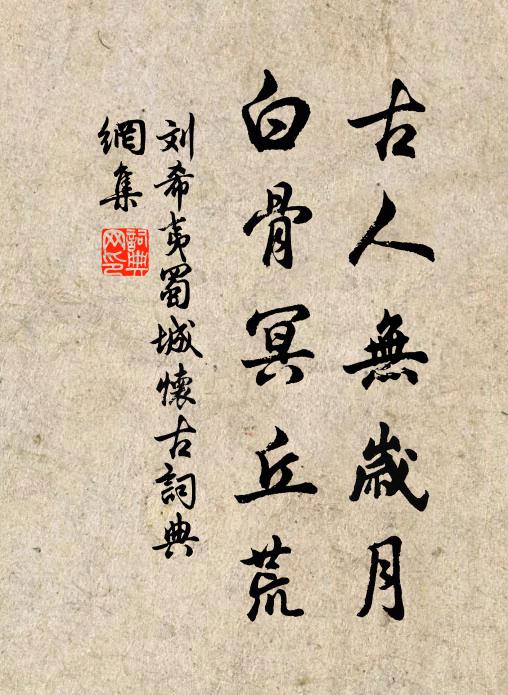 古人無歲月
白骨冥丘荒
刘希夷蜀城懷古詞典
網集
詞典
网印